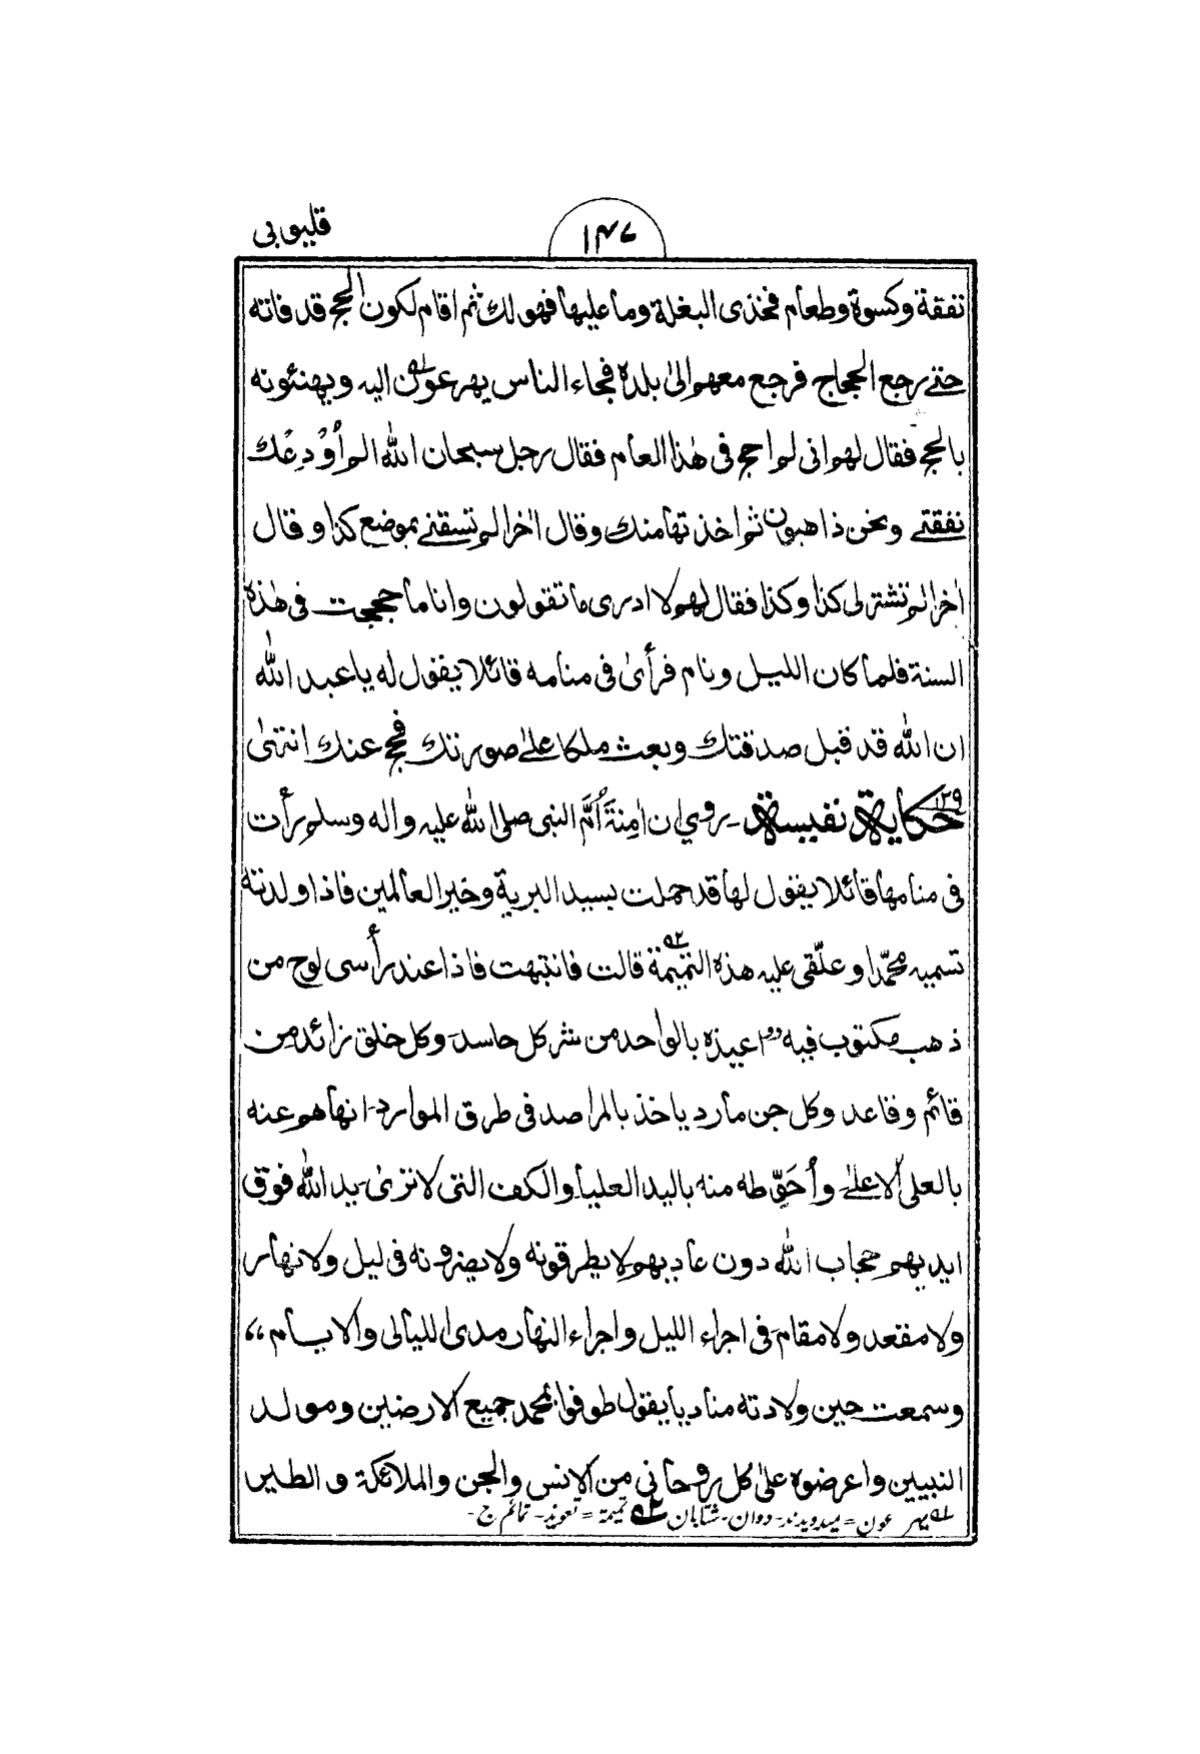 قليوبى
١٤٧
نفقة وكسوة وطعام فخذى البغلة وما عليها فهو لك ثم اقام لكون الحج قد فاته
حتے رجع الحجاج فرجع معهم الىٰ بلده فجاء الناس يهرعون اليه ويهنئونه
بالحج فقال لهم انى لم احج فى هٰذا العام فقال رجل سبحان الله الم أُوْدِعْك
نفقتے ونحن ذاهبون ثم اخذتها منك وقال اٰخر الم تسقنے بموضع كذا وقال
اٰخر الم تشتر لى كذا وكذا فقال لهم لا ادرى ما تقولون وانا ما حججت فى هٰذه
السنة فلما كان الليل ونام فرأىٰ فى منامه قائلا يقول له يا عبد الله
ان الله قد قبل صدقتك وبعث ملكا علےٰ صورتك فحج عنك انتهىٰ
١٢٩ حكاية نفيسة۔ روي ان اٰمِنَةَ اُمَّ النبى صلى الله عليه واٰله وسلم رأت
فى منامها قائلا يقول لها قد حملت بسيد البرية وخير العالمين فاذا ولدته
تسميه محمّدا وعلّقى عليه هذه التميمة٥٢ قالت فانتبهت فاذا عند رأسى لوح من
ذهب مكتوب فيه اعيذه بالواحد من شر كل حاسد۔ وكل خلق زائد من
قائم وقاعد وكل جن مارد ياخذ بالمراصد فى طرق الموارد۔ انهاهم عنه
بالعلى الاعلےٰ وأُحَوِّطه منه باليد العليا والكف التى لا ترىٰ۔ يد الله فوق
ايديهم حجاب الله دون عاديهم لا يطرقونه ولا يضرونه فى ليل ولا نهار
ولا مقعد ولا مقام۔ فى اجراء الليل واجراء النهار مدى الليالى والايام،،
وسمعت حين ولادته مناديا يقول طوفوا بمحمد جميع الارضين وموالد
النبيين واعرضوه علىٰ كل روحانى من الانس والجن والملائكة والطير
٥١ يهرعون = ميدويدند۔ دوان۔ شتابان ٥٢ تميمة = تعويذ۔ تمائم ج۔